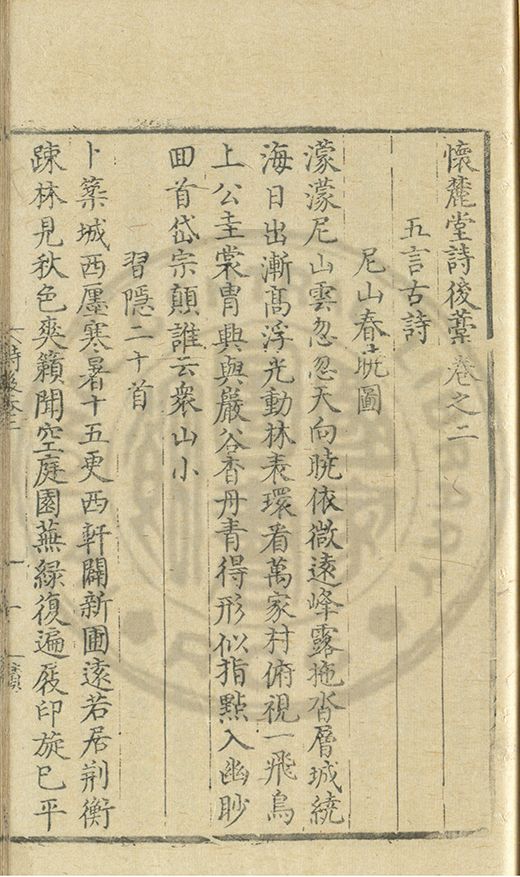 懷麓堂詩後藁卷之二
五言古詩
尼山春曉圖
濛濛尼山雲忽忽天向曉依微遠峰露拖沓層城繞
海日出漸髙浮光動林表環看萬家村俯視一飛鳥
上公圭裳胄興與巖谷香丹青得形似指點入幽眇
囬首岱宗顛誰云衆山小
習隱二十首
卜築城西廛寒暑十五更西軒闢新圃遠若居荆衡
踈林見秋色爽籟聞空庭園蕪緑復遍屐印旋已平